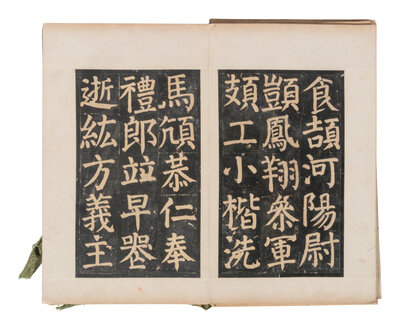 食頡河陽尉
顗鳳翔參軍
頍工小楷洗
馬頎恭仁奉
禮郎竝早
逝紘方義主